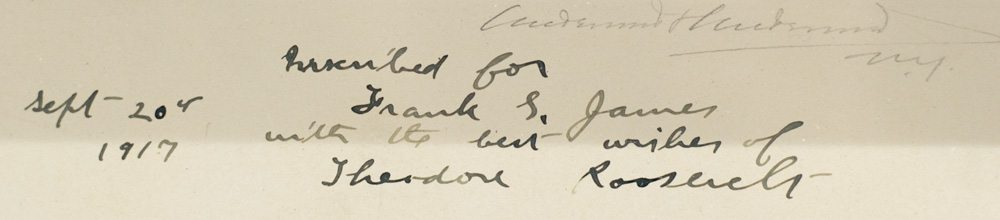 Underwood & Underwood
N.Y.
Inscribed for
Frank G. James
with the best wishes of
Theodore Roosevelt
Sept 20th
1917